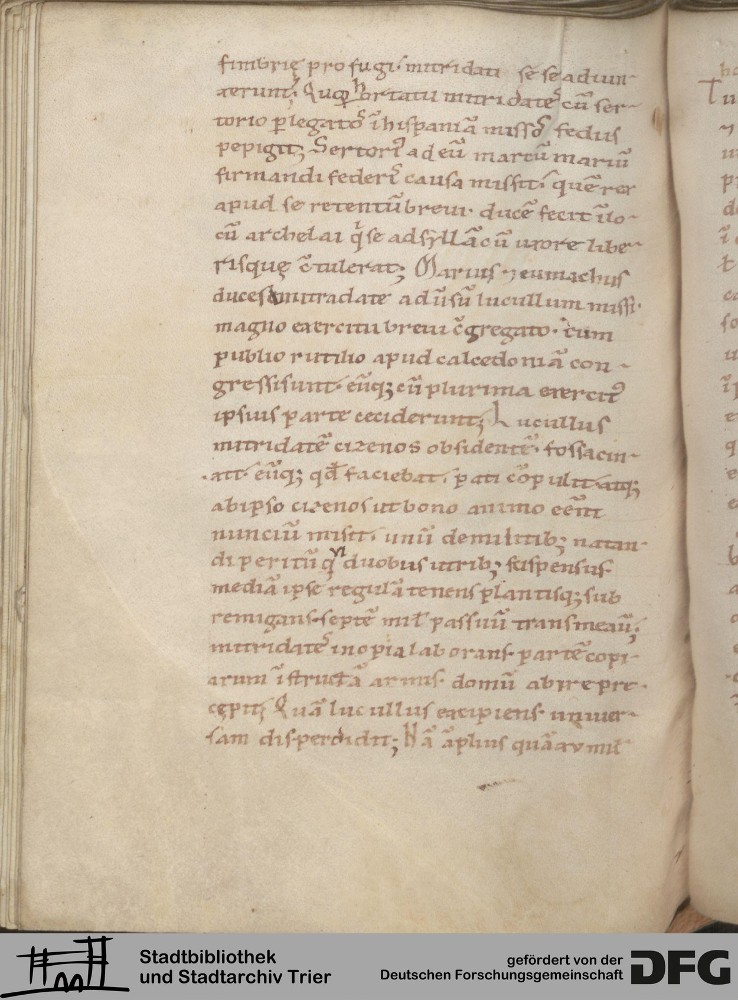 fimbrię profugi· mitridati se se adiun-
xerunt; Quoꝝ hortatu mitridateˢ cū ser-
torio p legatoˢ ī hispaniā missoˢ fedus
pepigit; Sertoriꝰ ad eū marcū mariū
firmandi federiˢ causa misit· quē rex
apud se retentū brevi· ducē fecit ī lo-
cū archelai q se ad syllā cū uxore libe-
risque c̄tulerat; Marius ⁊ eumachus
duces a mitradate adūsū lucullum missi·
magno exercitu brevi c̄gregato· cum
publio rutilio apud calcedoniā con-
gressi sunt· eūq; cū plurima exercitꝰ
ipsius parte ceciderunt; Lucullus
mitridatē cizenos obsidentē· fossa cin-
xit· eūq; qđ faciebat· pati cōpulit· atq;
ab ipso cizenos ut bono animo eēnt
nunciū misit· unū de militib; natan-
di peritū qui duobus utrib; suspensus
mediā ipse regulā tenens plantisq; sub
remigans· septē mil passuū transmeauit;
mitridateˢ inopia laborans· partē copi-
arum īstructā armis· domū abire pre-
cępit; Quā lucullus excipiens· univer-
sam disperdidit; Nā āplius quā xv mil
Stadtbibliothek
und Stadtarchiv Trier
gefördert von der
Deutschen Forschungsgemeinschaft
DFG